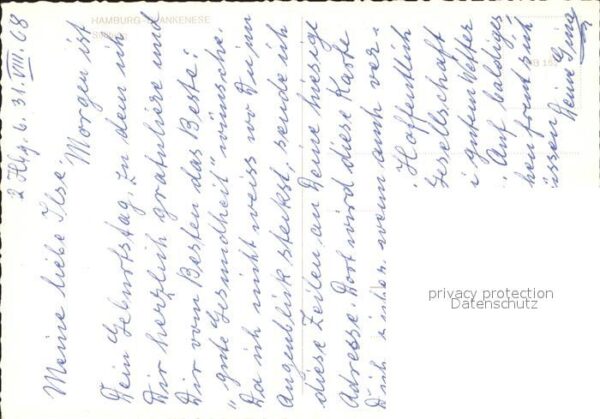 2 Hbg. 6. 31. VIII. 68
Meine liebe Ilse,
Morgen ist
Dein Geburtstag, zu dem ich
Dir herzlich gratuliere und
Dir vom Besten das Beste:
"gute Gesundheit" wünsche.
Da ich nicht weiss wo Du im
Augenblick steckst, sende ich
diese Zeilen an Deine hiesige
Adresse. Dort wird diese Karte
Dich sicher, wenn auch ver-
Hoffentlich
Gesellschaft
gutem Wetter
Auf baldiges
hen freut sich
üssen
Deine
HAMBURG-BLANKENESE
privacy protection
Datenschutz